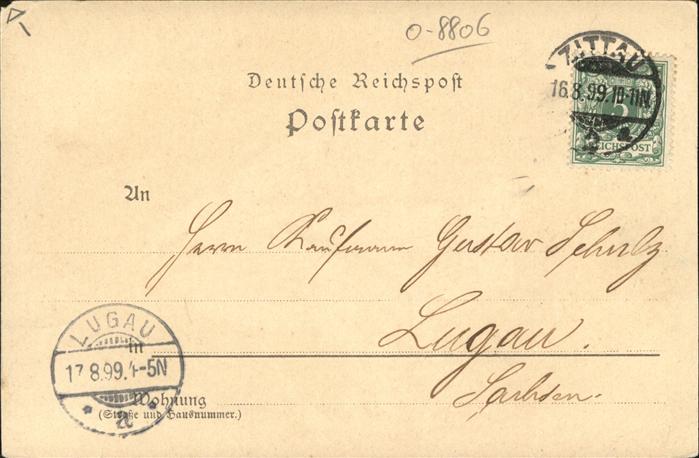 0-8806
ZITTAU
16.8.99.10-11N.
5
REICHSPOST
Deutsche Reichspost
Postkarte
An
Herrn Kaufmann Gustav Schulz
Lugau.
Sachsen.
LUGAU
in
17.8.99.4-5N
a
Wohnung
(Straße und Hausnummer.)